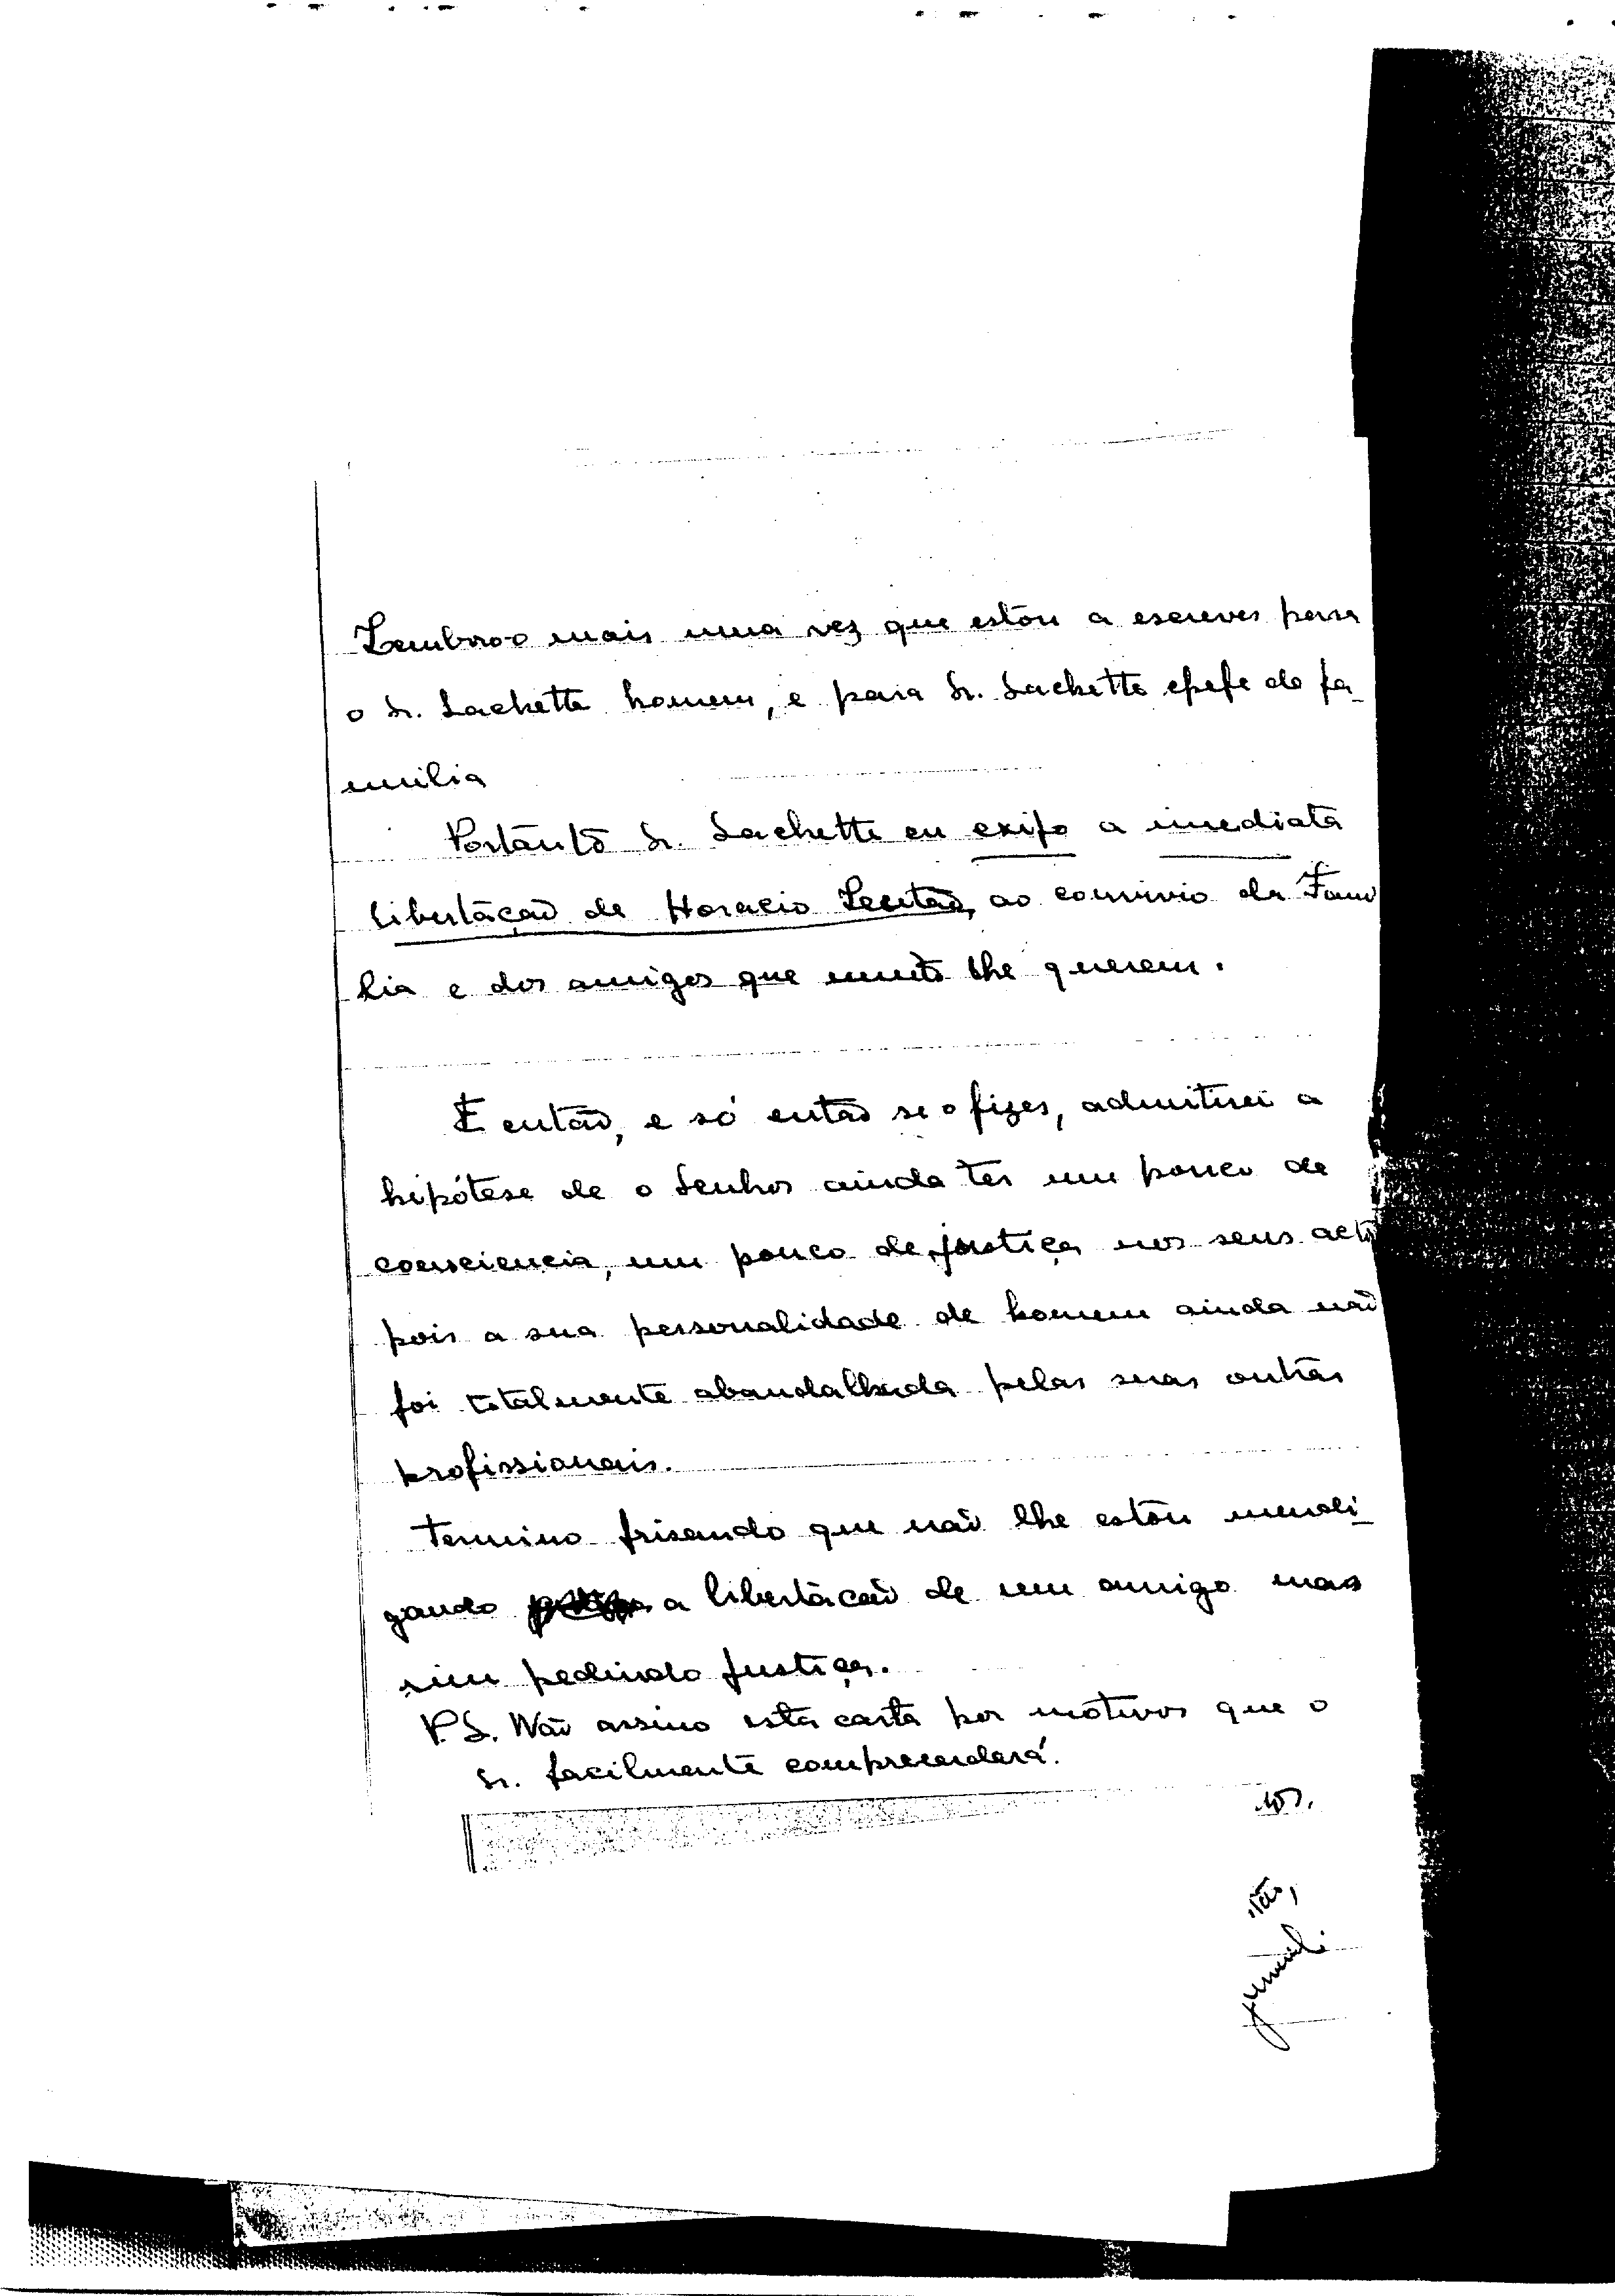 Lembro-o mais uma vez que estou a escrever para
o Sr. Sachette homem, e para Sr. Sachette chefe de fa-
milia
Portanto Sr. Sachette eu exijo a imediata
libertação de Horacio Leitão, ao convivio da Fami
lia e dos amigos que muito lhe querem.
E então, e só então se o fizer, admitirei a
hipótese de o Senhor ainda ter um pouco de
consciencia, um pouco de justiça nos seus acto
pois a sua personalidade de homem ainda não
foi totalmente abandalhada pelas suas outras
profissionais.
Termino frisando que não lhe estou mendi-
gando a libertação de um amigo mas
sim pedindo Justiça.
P.S. Não assino esta carta por motivos que o
Sr. facilmente compreenderá.